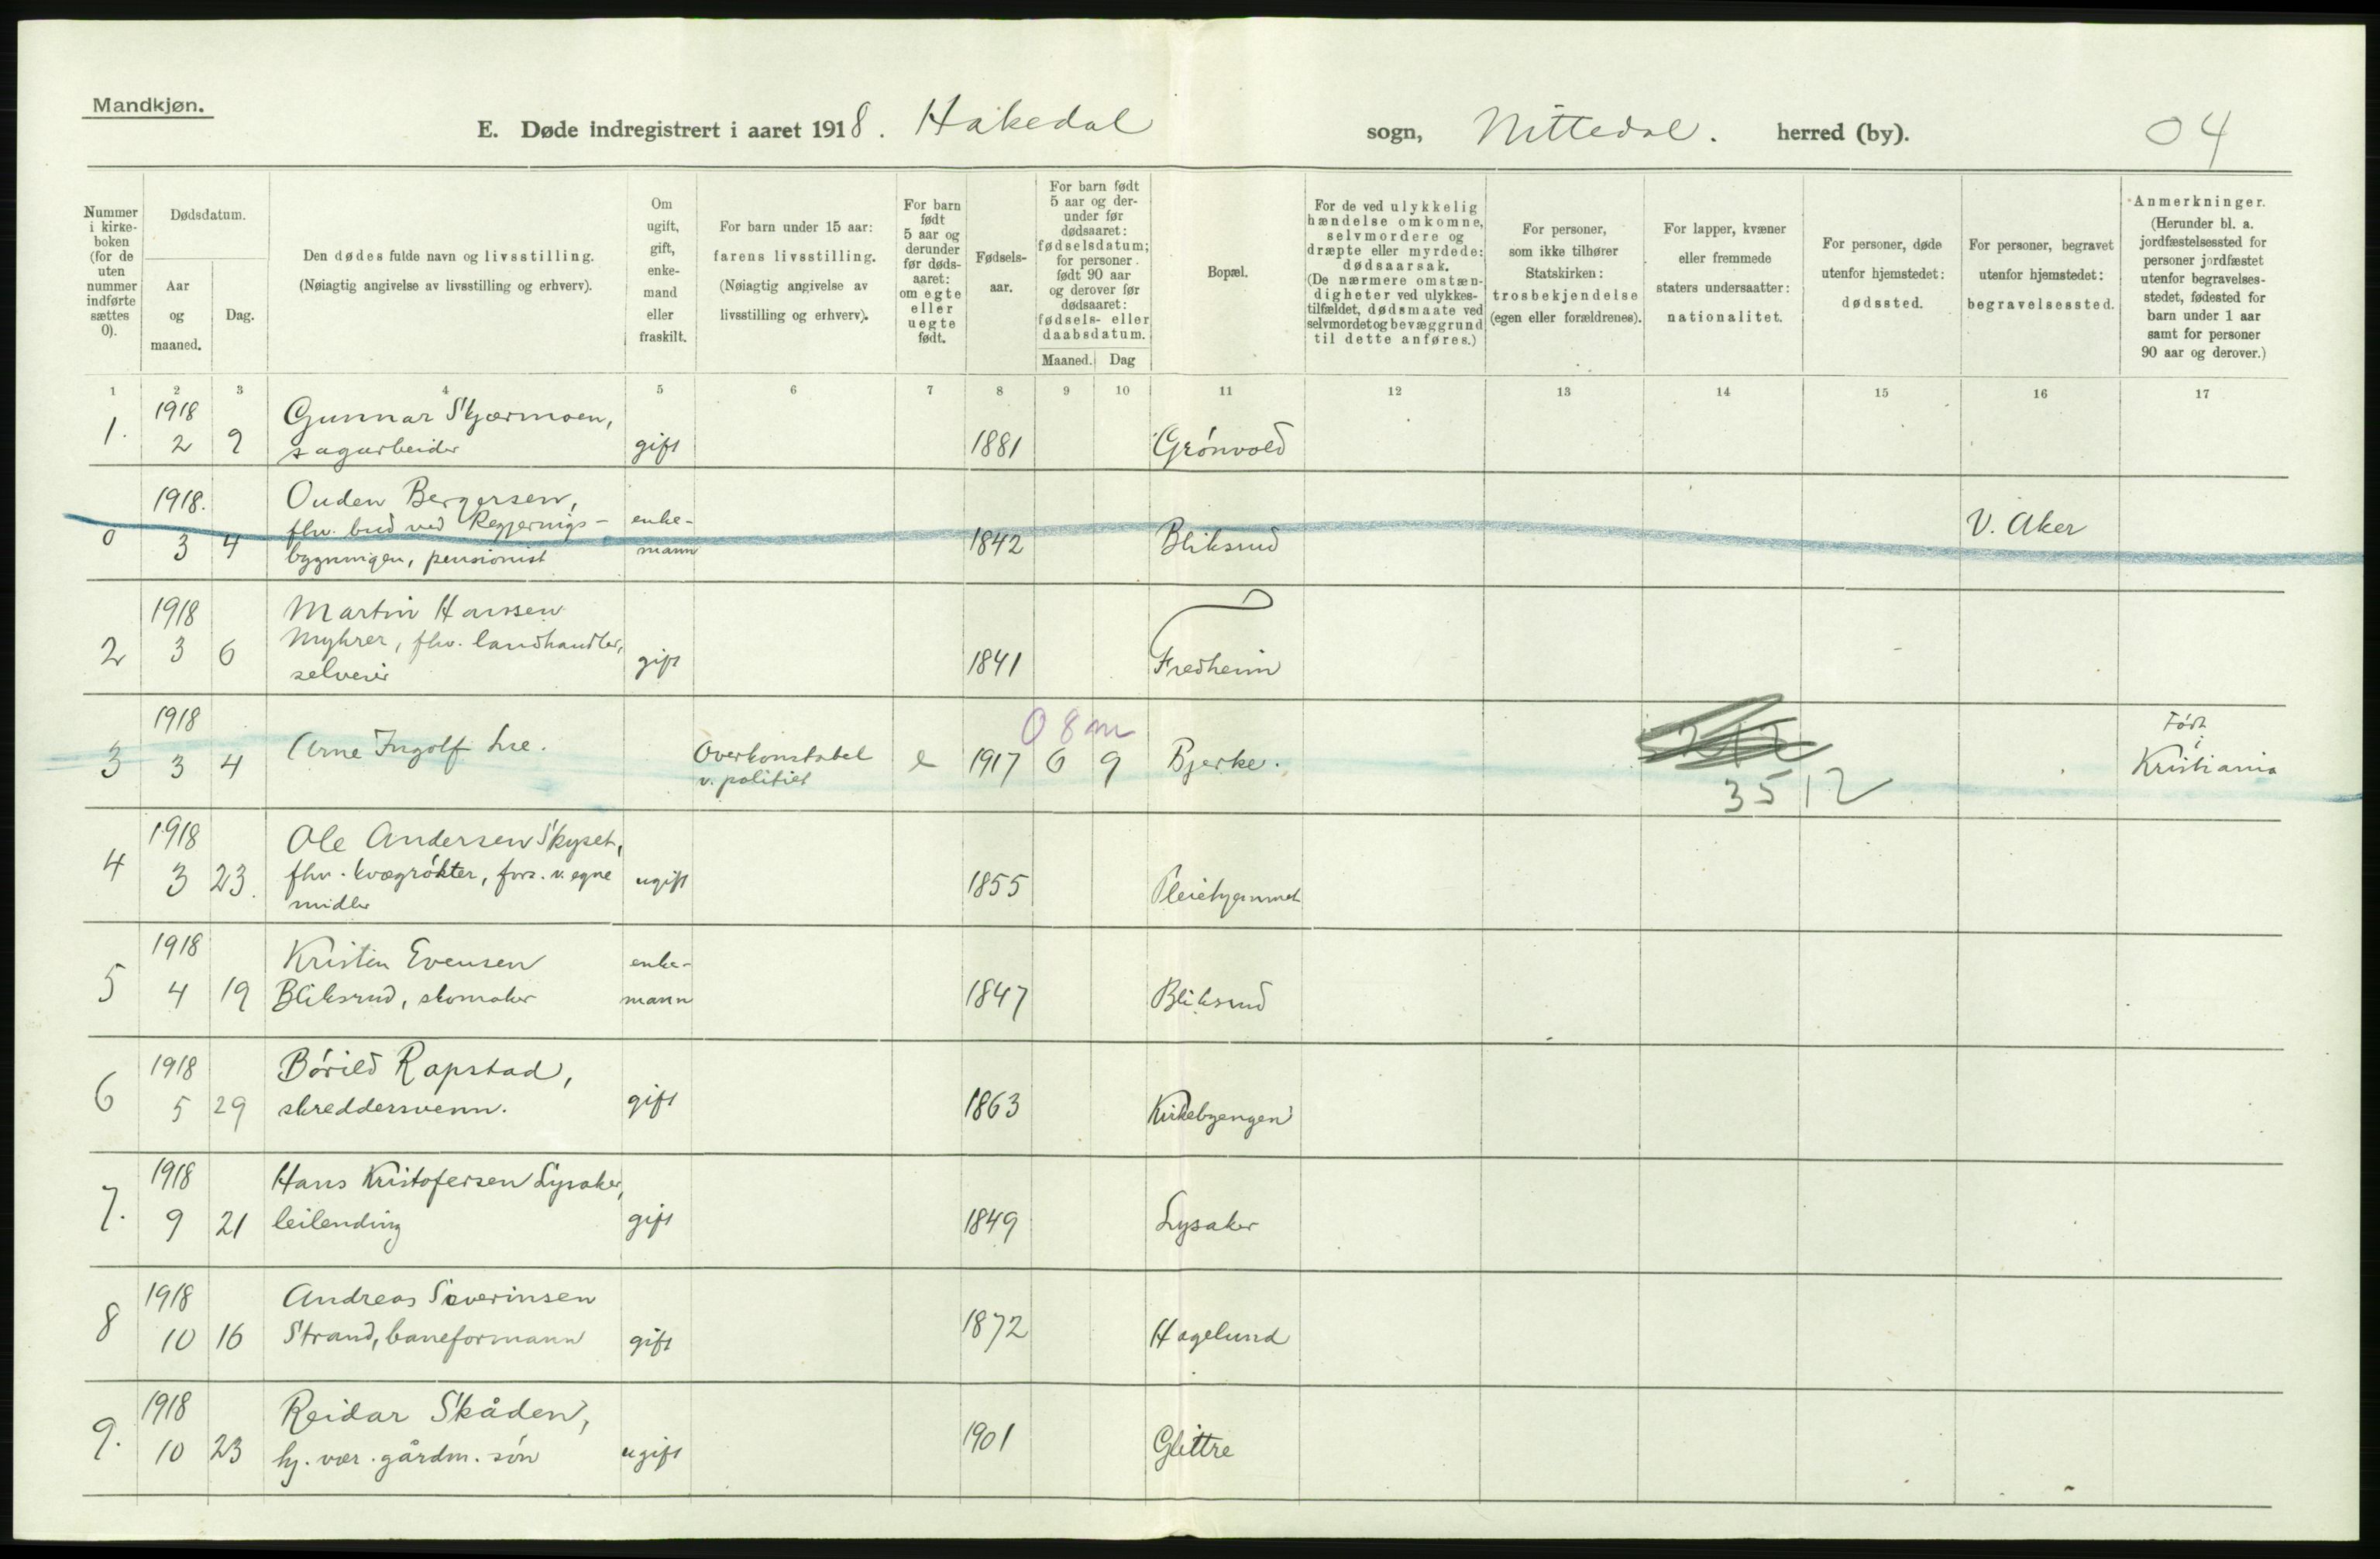 Mandkjøn.
E. Døde indregistrert i aaret 1918. Hakedal sogn, Nittedal. herred (by). 04
Nummer i kirkeboken (for de uten nummer indførte sættes 0).
Dødsdatum.
Aar og maaned.
Dag.
Den dødes fulde navn og livsstilling.
(Nøiagtig angivelse av livsstilling og erhverv).
Om ugift, gift, enkemand eller fraskilt.
For barn under 15 aar: farens livsstilling. (Nøiagtig angivelse av livsstilling og erhverv).
For barn født 5 aar og derunder før dødsaaret: om egte eller uegte født.
Fødselsaar.
For barn født 5 aar og derunder før dødsaaret: fødselsdatum; for personer født 90 aar og derover før dødsaaret: fødsels- eller daabsdatum.
Maaned. Dag
Bopæl.
For de ved ulykkelig hændelse omkomne, selvmordere og dræpte eller myrdede: dødsaarsak. (De nærmere omstændigheter ved ulykkestilfældet, dødsmaate ved selvmordet og bevæggrund til dette anføres.)
For personer, som ikke tilhører Statskirken: trosbekjendelse (egen eller forældrenes).
For lapper, kvæner eller fremmede staters undersaatter: nationalitet.
For personer, døde utenfor hjemstedet: dødssted.
For personer, begravet utenfor hjemstedet: begravelsessted.
Anmerkninger. (Herunder bl. a. jordfæstelsessted for personer jordfæstet utenfor begravelsesstedet, fødested for barn under 1 aar samt for personer 90 aar og derover.)
1 2 3 4 5 6 7 8 9 10 11 12 13 14 15 16 17
1918 Gunnar Skjærmoen,
1. 2 9 sagarbeider gift 1881 Grónvold
1918. Ouden Bergersen,
flv. bud ved Regjernigs- enke- V. Aker
0 3 4 bygningen, pensionist mann 1842 Bliksrud
1918 Martin Hanssen
2 3 6 Myhrer, fhv. landhandler,
selveier gift 1841 Fredheim
1918 0 8 m Født
3 3 4 Arne Ingolf Lie. Overkonstabel e 1917 6 9 Bjerke. i Kristiania
v. politiet 3512
1918 Ole Andersen Skyset,
4 3 23. fhv. kvægrókter, fors. v. egne ugift 1855 Pleiehjemmet
midler
1918 Kristin Evensen enke-
5 4 19 Bliksrud, skomaker mann 1847 Bliksrud
1918 Bórild Rapstad,
6 5 29 skreddersvenn. gift 1863 Kirkebyengen
1918 Hans Kristofersen Lysaker,
7. 9 21 leilending gift 1849 Lysaker
1918 Andreas Severinsen
8 10 16 Strand, baneformann gift 1872 Hagelund
1918 Reidar Skåden,
9. 10 23 hj. vær. gårdm. són ugift 1901 Glittre